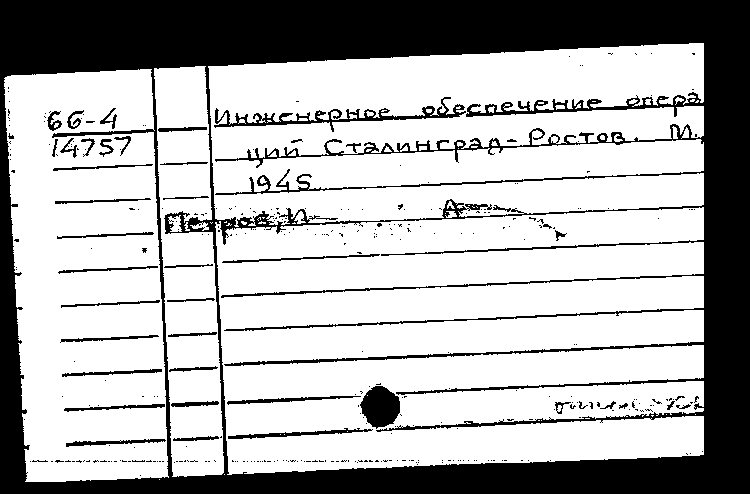 66-4
14757
Инженерное обеспечение опера
ций Сталинград-Ростов. М.,
1945
Петров, И А